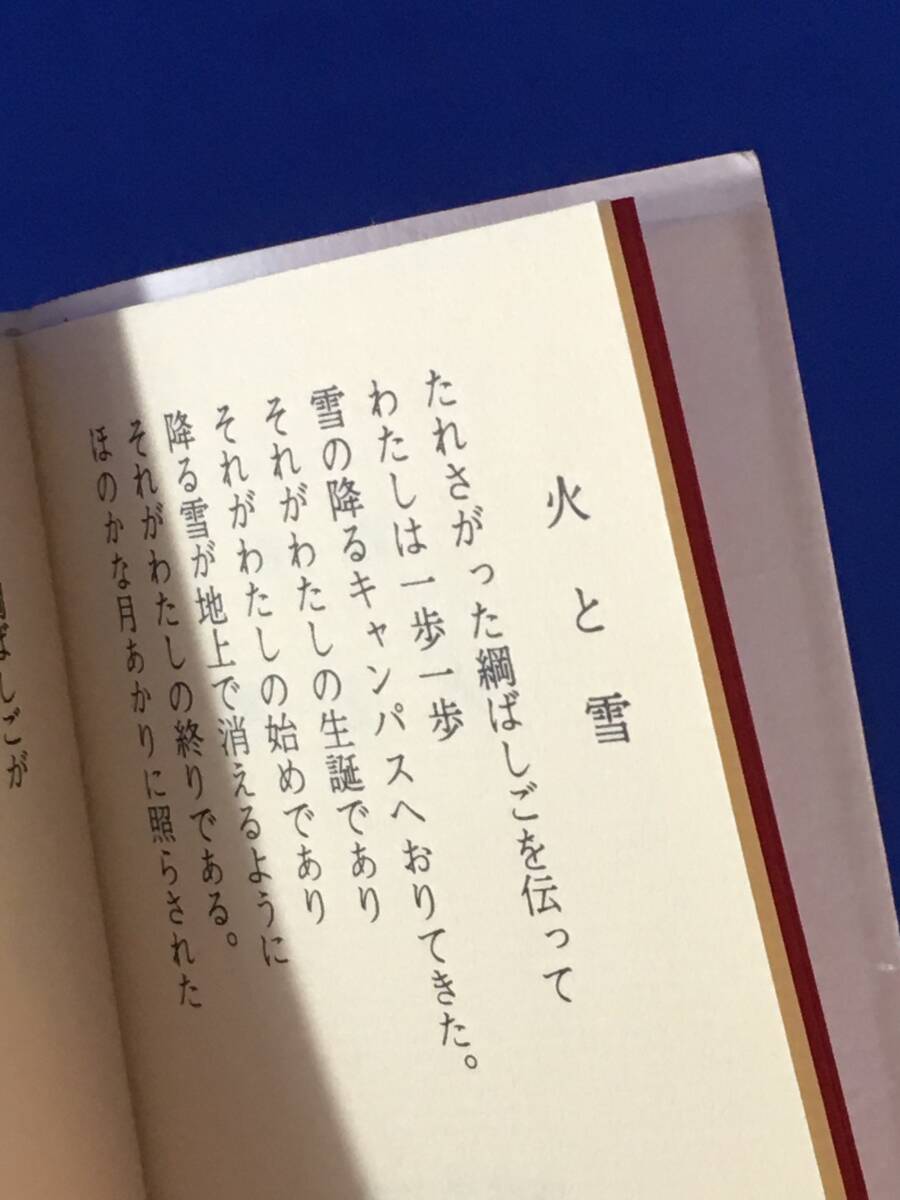 火と雪
たれさがった綱ばしごを伝って
わたしは一歩一歩
雪の降るキャンパスへおりてきた。
それがわたしの生誕であり
それがわたしの始めであり
降る雪が地上で消えるように
それがわたしの終りである。
ほのかな月あかりに照らされた
ばしごが